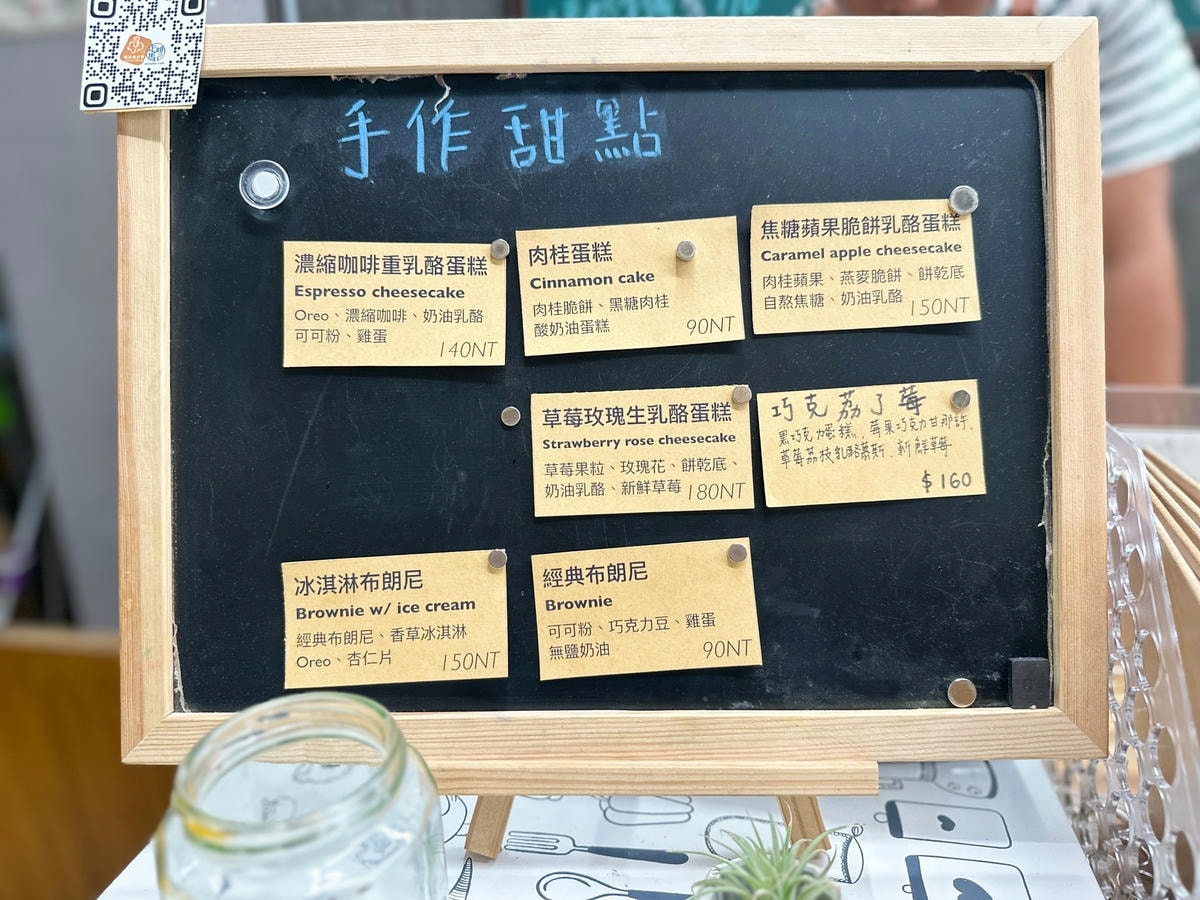 手作甜點
濃縮咖啡重乳酪蛋糕
Espresso cheesecake
Oreo、濃縮咖啡、奶油乳酪
可可粉、雞蛋
140NT
肉桂蛋糕
Cinnamon cake
肉桂脆餅、黑糖肉桂
酸奶油蛋糕
90NT
焦糖蘋果脆餅乳酪蛋糕
Caramel apple cheesecake
肉桂蘋果、燕麥脆餅、餅乾底
自熬焦糖、奶油乳酪
150NT
草莓玫瑰生乳酪蛋糕
Strawberry rose cheesecake
草莓果粒、玫瑰花、餅乾底、
奶油乳酪、新鮮草莓
180NT
巧克荔了莓
黑巧克力蛋糕、莓果巧克力甘那許、
草莓荔枝乳酪慕斯、新鮮草莓
$160
冰淇淋布朗尼
Brownie w/ ice cream
經典布朗尼、香草冰淇淋
Oreo、杏仁片
150NT
經典布朗尼
Brownie
可可粉、巧克力豆、雞蛋
無鹽奶油
90NT